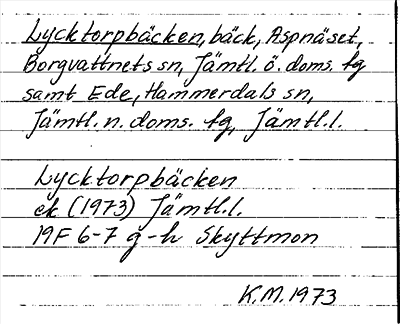 Lycktorpbäcken, bäck, Aspnäset,
Borgvattnets sn, Jämtl. ö. doms. fg
samt Ede, Hammerdals sn,
Jämtl. n. doms. fg, Jämtl. l.
Lycktorpbäcken
ek (1973) Jämtl. l.
19F 6-7 g-h Skyttmon
K.M. 1973